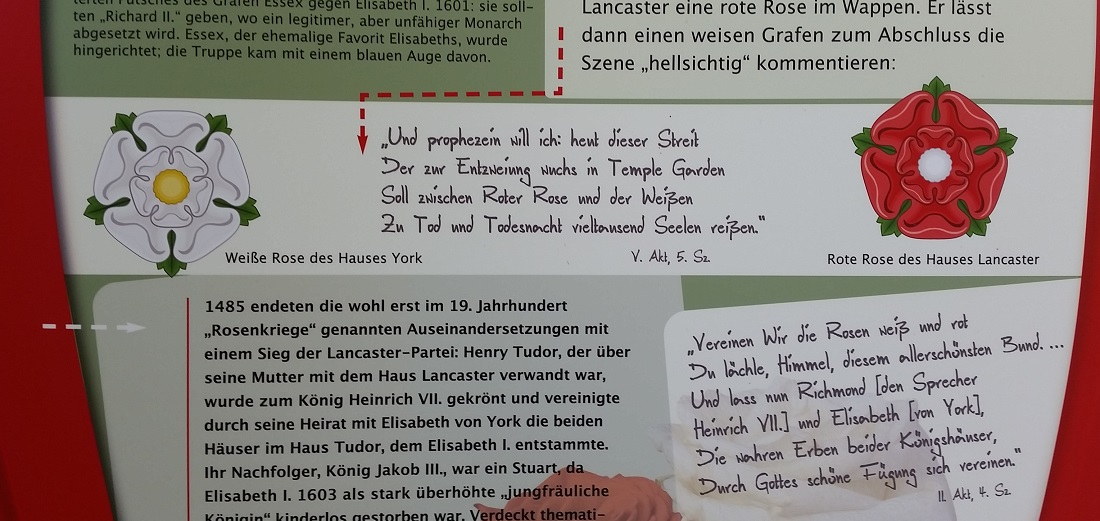 terten Putsches des Grafen Essex gegen Elisabeth I. 1601: sie soll-
ten „Richard II.“ geben, wo ein legitimer, aber unfähiger Monarch
abgesetzt wird. Essex, der ehemalige Favorit Elisabeths, wurde
hingerichtet; die Truppe kam mit einem blauen Auge davon.
Lancaster eine rote Rose im Wappen. Er lässt
dann einen weisen Grafen zum Abschluss die
Szene „hellsichtig“ kommentieren:
„Und prophezein will ich: heut dieser Streit
Der zur Entzweiung wuchs in Temple Garden
Soll zwischen Roter Rose und der Weißen
Zu Tod und Todesnacht vieltausend Seelen reißen.“
V. Akt, 5. Sz.
Weiße Rose des Hauses York
Rote Rose des Hauses Lancaster
1485 endeten die wohl erst im 19. Jahrhundert
„Rosenkriege“ genannten Auseinandersetzungen mit
einem Sieg der Lancaster-Partei: Henry Tudor, der über
seine Mutter mit dem Haus Lancaster verwandt war,
wurde zum König Heinrich VII. gekrönt und vereinigte
durch seine Heirat mit Elisabeth von York die beiden
Häuser im Haus Tudor, dem Elisabeth I. entstammte.
Ihr Nachfolger, König Jakob III., war ein Stuart, da
Elisabeth I. 1603 als stark überhöhte „jungfräuliche
Königin“ kinderlos gestorben war. Verdeckt themati-
„Vereinen Wir die Rosen weiß und rot
Du lächle, Himmel, diesem allerschönsten Bund. ...
Und lass nun Richmond [den Sprecher
Heinrich VII.] und Elisabeth [von York],
Die wahren Erben beider Königshäuser,
Durch Gottes schöne Fügung sich vereinen.“
II. Akt, 4. Sz